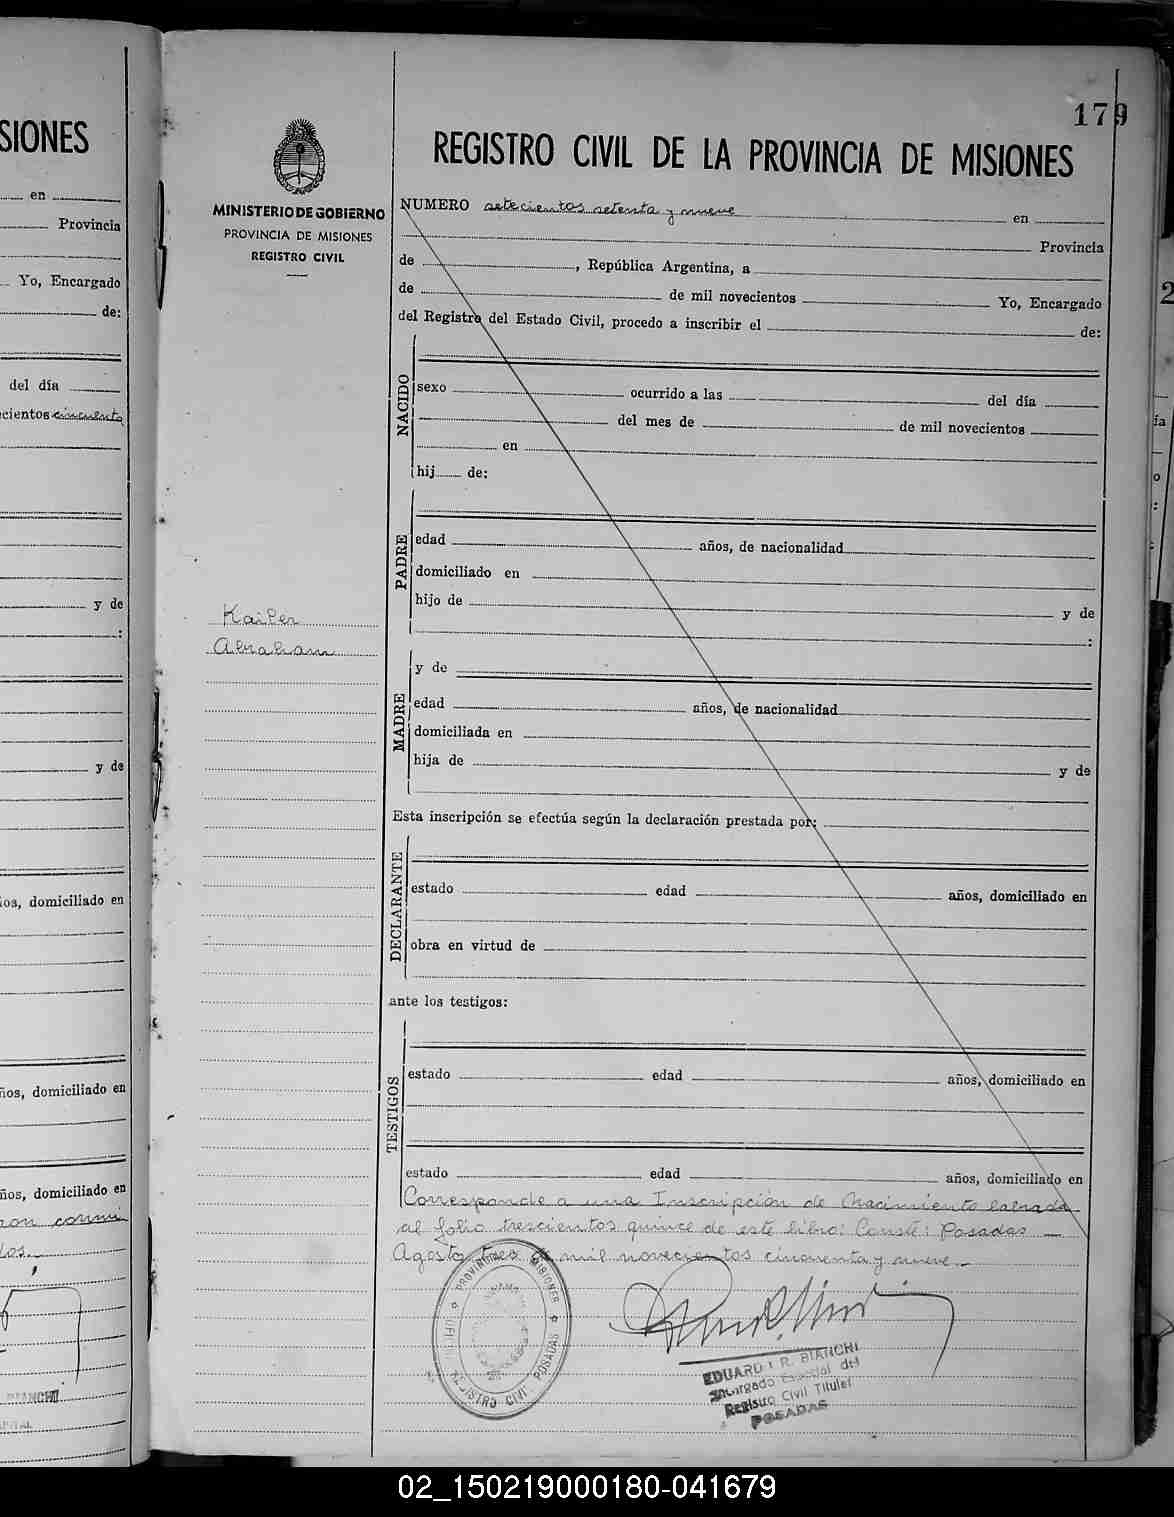 SIONES
en
Provincia
Yo, Encargado
de:
del día
cientos cincuenta
y de
:
y de
os, domiciliado en
ños, domiciliado en
ños, domiciliado en
179
MINISTERIO DE GOBIERNO
PROVINCIA DE MISIONES
REGISTRO CIVIL
Abraham
REGISTRO CIVIL DE LA PROVINCIA DE MISIONES
NUMERO setecientos setenta y nueve en
Provincia
de , República Argentina, a
de de mil novecientos Yo, Encargado
del Registro del Estado Civil, procedo a inscribir el de:
NACIDO
sexo ocurrido a las del día
del mes de de mil novecientos
en
hij de:
PADRE
edad años, de nacionalidad
domiciliado en
hijo de y de
:
MADRE
y de
edad años, de nacionalidad
domiciliada en
hija de y de
Esta inscripción se efectúa según la declaración prestada por:
DECLARANTE
estado edad años, domiciliado en
obra en virtud de
ante los testigos:
TESTIGOS
estado edad años, domiciliado en
estado edad años, domiciliado en
Corresponde a una Inscripción de Nacimiento labrada
al folio trescientos quince de este libro: Conste: Posadas —
Agosto tres de mil novecientos cincuenta y nueve.-
PROVINCIA DE MISIONES
REGISTRO CIVIL POSADAS
EDUARDO R. BIANCHI
Encargado Especial del
Registro Civil Titular
POSADAS
BIANCHI
02_150219000180-041679